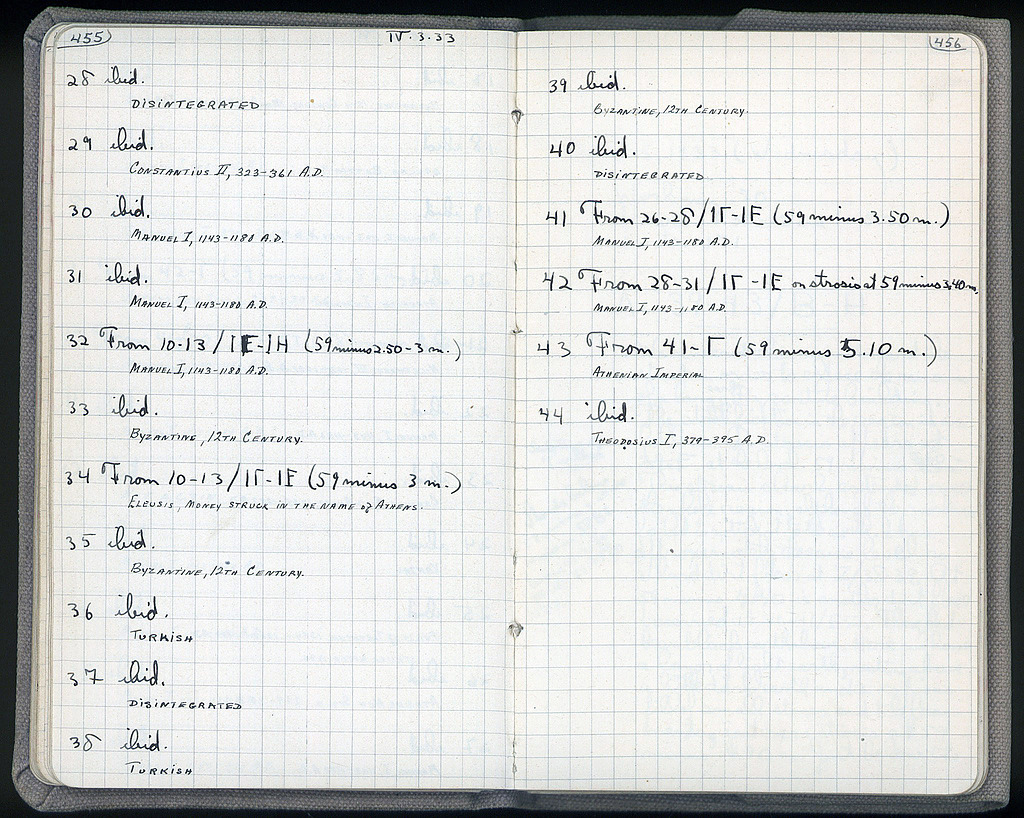 455
IV.3.33
28 ibid.
DISINTEGRATED
29 ibid.
CONSTANTIUS II, 323-361 A.D.
30 ibid.
MANUEL I, 1143-1180 A.D.
31 ibid.
MANUEL I, 1143-1180 A.D.
32 From 10-13/ΙΕ-ΙΗ (59 minus 2.50-3 m.)
MANUEL I, 1143-1180 A.D.
33 ibid.
BYZANTINE, 12TH CENTURY.
34 From 10-13/ΙΓ-ΙΕ (59 minus 3 m.)
ELEUSIS, MONEY STRUCK IN THE NAME OF ATHENS.
35 ibid.
BYZANTINE, 12TH CENTURY.
36 ibid.
TURKISH
37 ibid.
DISINTEGRATED
38 ibid.
TURKISH
456
39 ibid.
BYZANTINE, 12TH CENTURY.
40 ibid.
DISINTEGRATED
41 From 26-28/ΙΓ-ΙΕ (59 minus 3.50 m.)
MANUEL I, 1143-1180 A.D.
42 From 28-31/ΙΓ-ΙΕ on strosis at 59 minus 3.40 m.
MANUEL I, 1143-1180 A.D.
43 From 41-Γ (59 minus 5.10 m.)
ATHENIAN IMPERIAL
44 ibid.
THEODOSIUS I, 379-395 A.D.